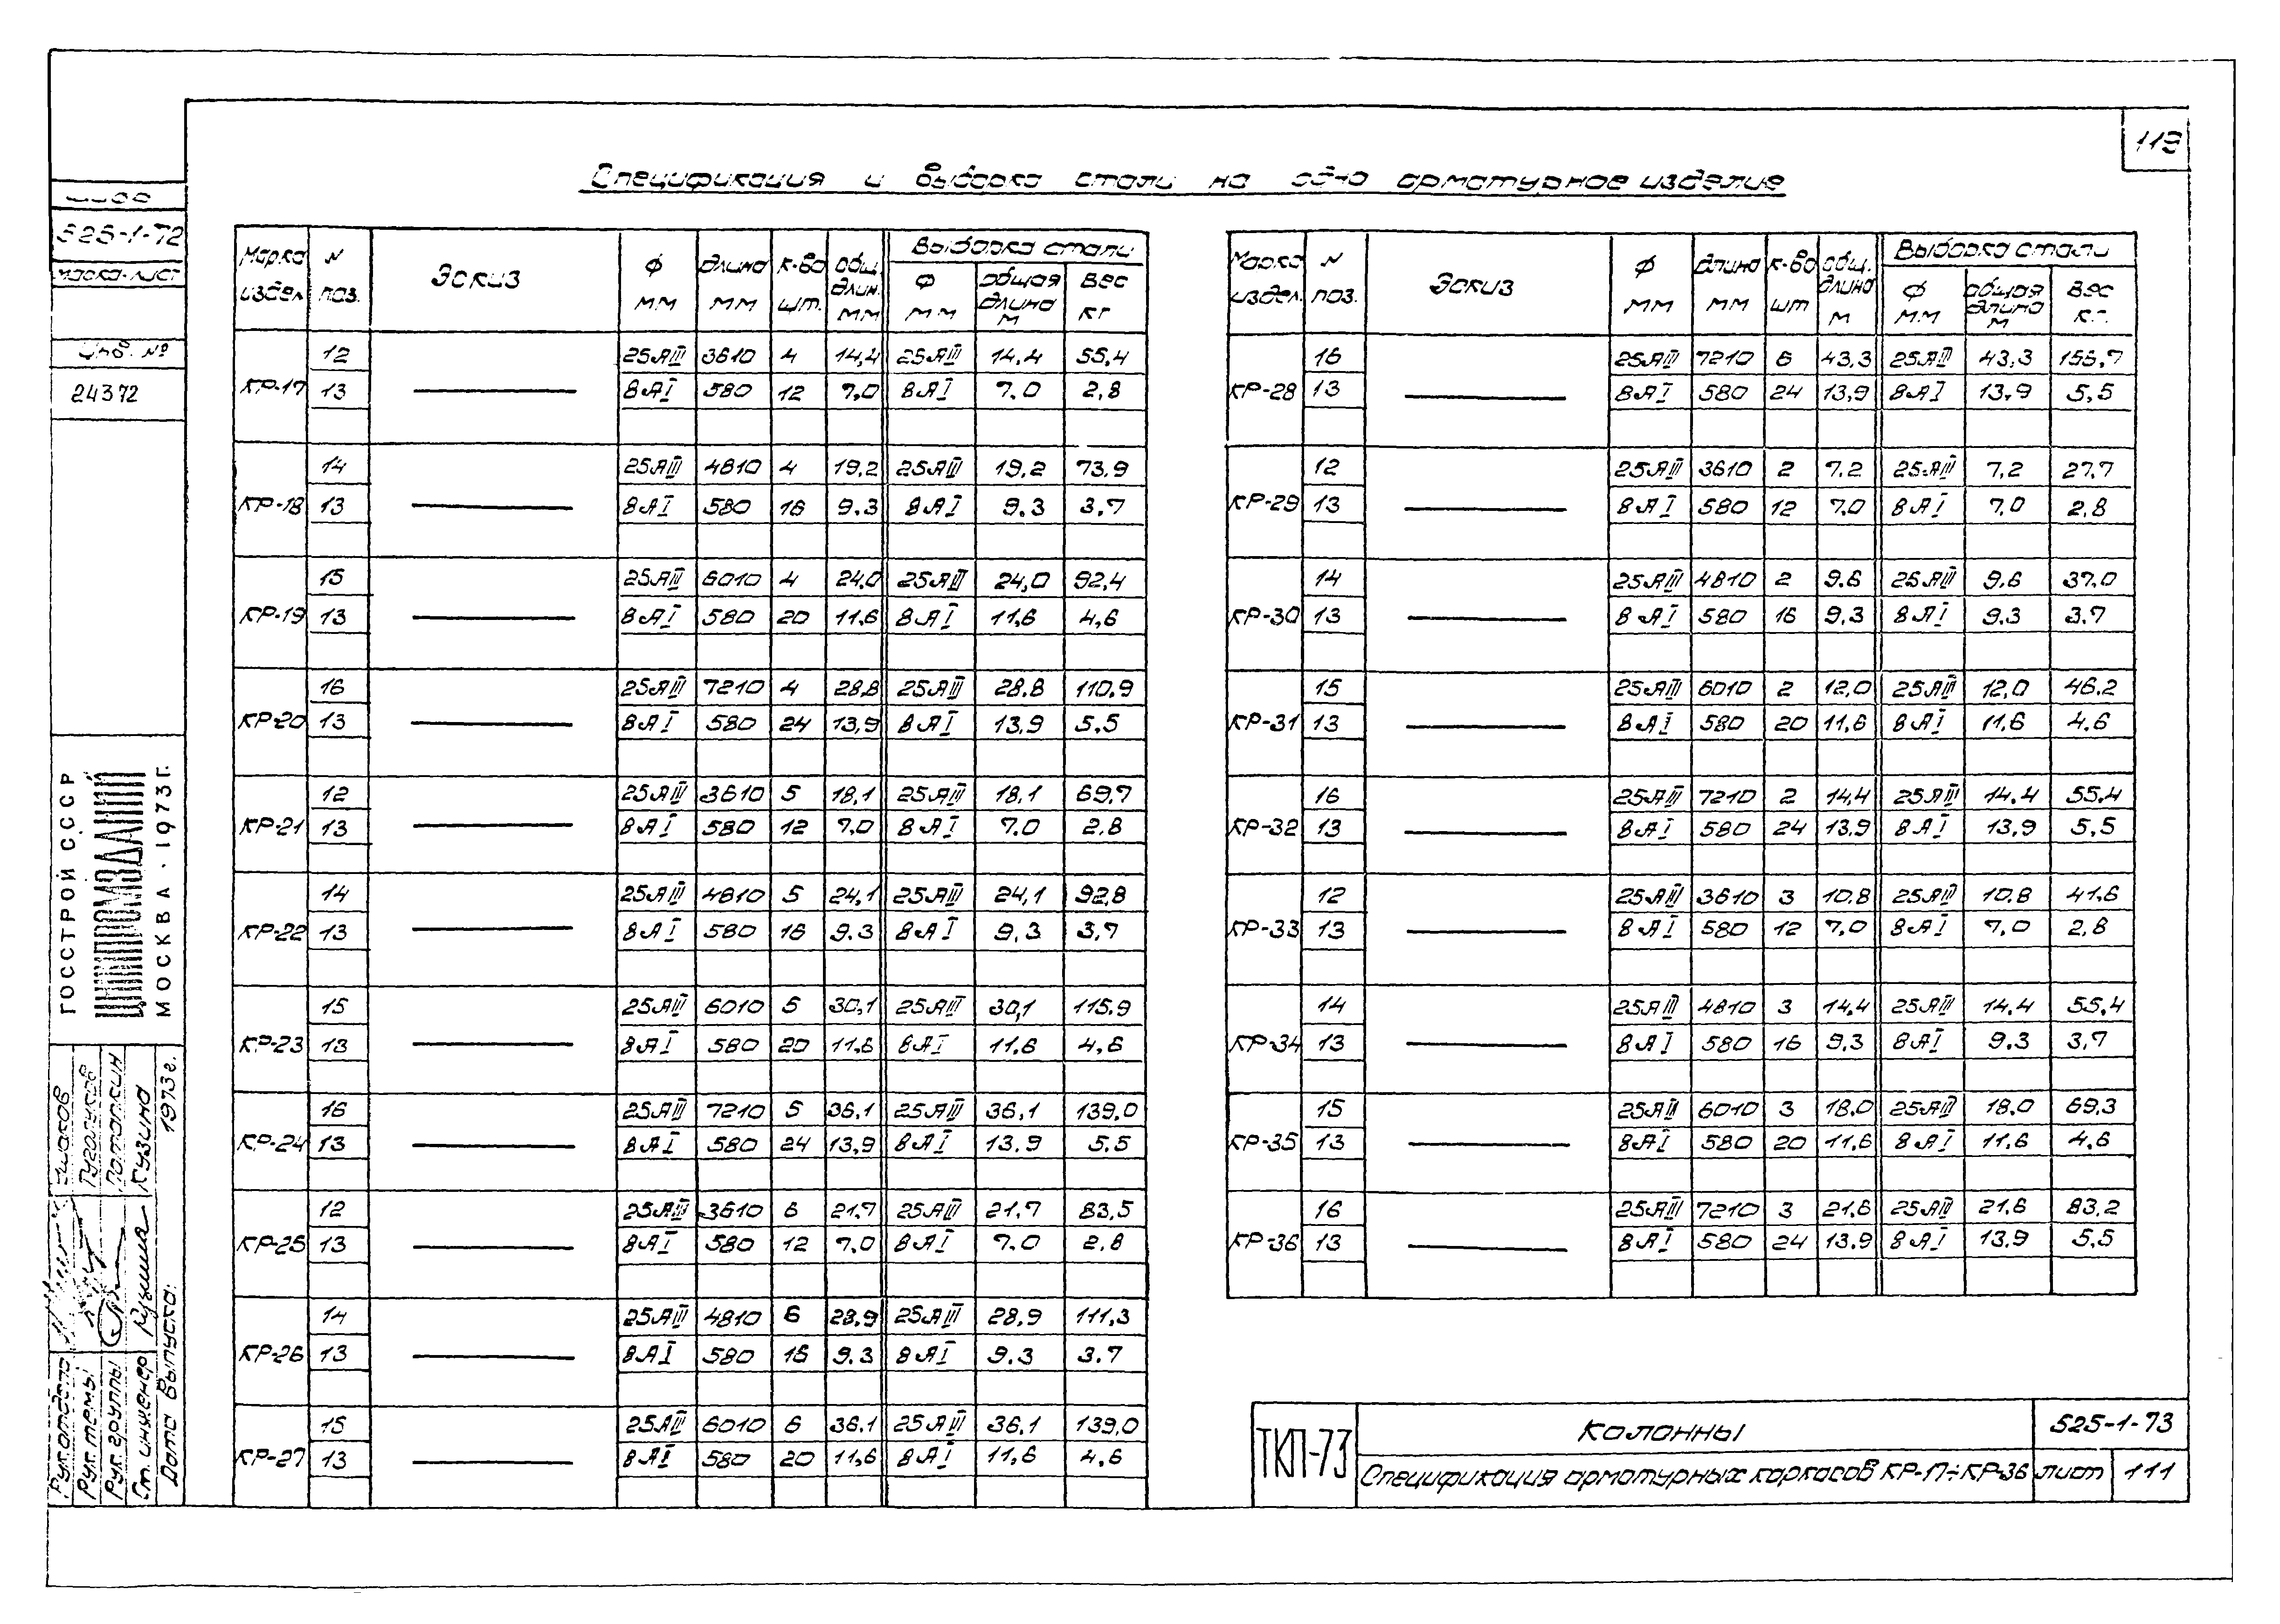 113
Спецификация и выборка стали на одно арматурное изделие
525-1-72
марка-лист
Инв. №
24372
ГОССТРОЙ СССР
ЦНИИПРОМЗДАНИЙ
МОСКВА · 1973 г.
Рук. отдела Ушаков
Рук. темы
Рук. группы Потапкин
Ст. инженер Кузина
Дата выпуска: 1973 г.
Марка издел. N поз. Эскиз Ф мм Длина мм к-во шт. Общ. длин. мм Выборка стали Ф мм общая длина м Вес кг
КР-17 12 25АIII 3610 4 14,4 25АIII 14.4 55.4
13 8АI 580 12 7,0 8АI 7.0 2,8
КР-18 14 25АIII 4810 4 19.2 25АIII 19.2 73.9
13 8АI 580 16 9.3 8АI 9.3 3.7
КР-19 15 25АIII 6010 4 24.0 25АIII 24,0 92,4
13 8АI 580 20 11,6 8АI 11,6 4,6
КР-20 16 25АIII 7210 4 28,8 25АIII 28.8 110.9
13 8АI 580 24 13,9 8АI 13.9 5.5
КР-21 12 25АIII 3610 5 18,1 25АIII 18.1 69.7
13 8АI 580 12 7.0 8АI 7.0 2.8
КР-22 14 25АIII 4810 5 24,1 25АIII 24,1 92,8
13 8АI 580 16 9.3 8АI 9,3 3,7
КР-23 15 25АIII 6010 5 30,1 25АIII 30,1 115.9
13 8АI 580 20 11,6 8АI 11.6 4,6
КР-24 16 25АIII 7210 5 36,1 25АIII 36,1 139,0
13 8АI 580 24 13,9 8АI 13.9 5.5
КР-25 12 25АIII 3610 6 21,7 25АIII 21,7 83,5
13 8АI 580 12 7,0 8АI 7.0 2.8
КР-26 14 25АIII 4810 6 28,9 25АIII 28.9 111,3
13 8АI 580 16 9.3 8АI 9.3 3.7
КР-27 15 25АIII 6010 6 36.1 25АIII 36,1 139,0
13 8АI 580 20 11,6 8АI 11,6 4,6
Марка издел. N поз. Эскиз Ф мм Длина мм к-во шт общ. длина м Выборка стали Ф мм общая длина м Вес кг.
КР-28 16 25АIII 7210 6 43,3 25АIII 43,3 166,7
13 8АI 580 24 13,9 8АI 13,9 5,5
КР-29 12 25АIII 3610 2 7.2 25АIII 7,2 27,7
13 8АI 580 12 7,0 8АI 7,0 2,8
КР-30 14 25АIII 4810 2 9.6 25АIII 9.6 37,0
13 8АI 580 16 9.3 8АI 9.3 3.7
КР-31 15 25АIII 6010 2 12,0 25АIII 12,0 46.2
13 8АI 580 20 11,6 8АI 11,6 4.6
КР-32 16 25АIII 7210 2 14,4 25АIII 14.4 55,4
13 8АI 580 24 13,9 8АI 13,9 5,5
КР-33 12 25АIII 3610 3 10.8 25АIII 10.8 41.6
13 8АI 580 12 7,0 8АI 7,0 2,8
КР-34 14 25АIII 4810 3 14,4 25АIII 14.4 55,4
13 8АI 580 16 9,3 8АI 9.3 3,7
КР-35 15 25АIII 6010 3 18.0 25АIII 18.0 69.3
13 8АI 580 20 11,6 8АI 11.6 4.6
КР-36 16 25АIII 7210 3 21,6 25АIII 21.6 83,2
13 8АI 580 24 13.9 8АI 13,9 5,5
ТКП-73
Колонны
525-1-73
Спецификация арматурных каркасов КР-17÷КР-36
лист 111